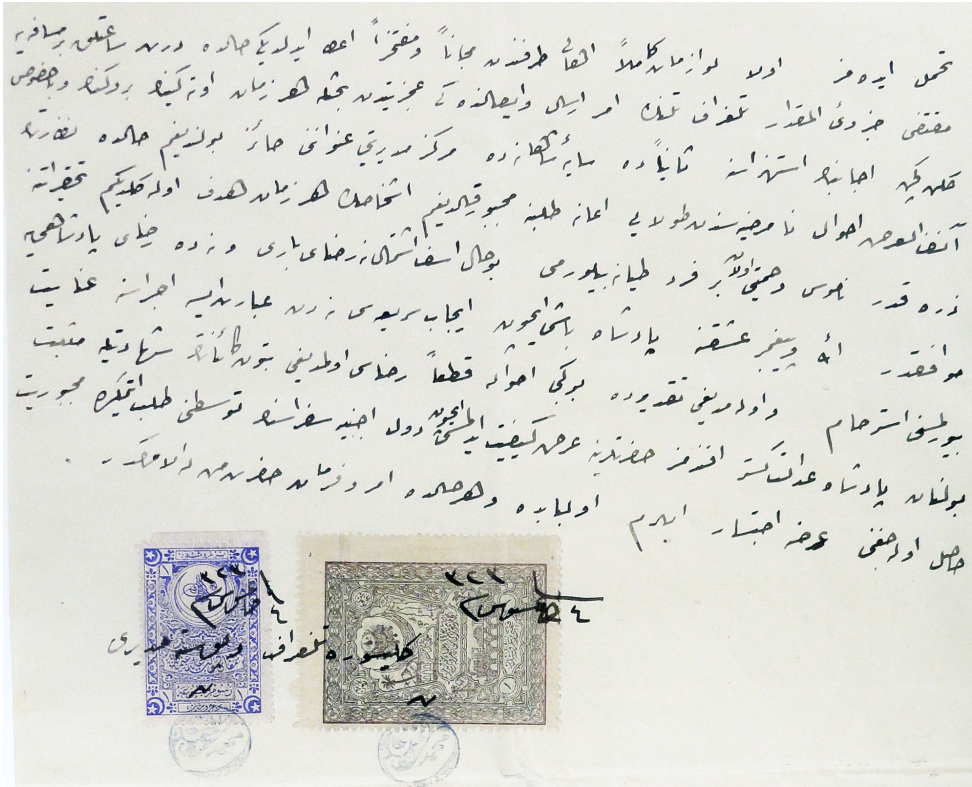 تحمل ايده مز اولا لوازمات كاملاً اهالى طرفندن مجاناً ومفتخراً اعطا ايدلديكى حالده درت ساعتلق بر مسافه يه
مقتضى جزوئ المقدار تلغراف تلنك امر ارسال وايصالنده كى عجزيتدن بحثله هر زمان اوته كينك بروكينك وبالخصوص
اجانبك استهزاسنه ثانياً ده سايۀ شاهانه ده مركز مديريتى عنوانى حائز بولنديغم حالده نظارت
آنف العرض احوال نا مرضيه سندن طولايى اعانه طلبنه مجبور قالديغم اشخاصك هر زمان هدف اوله كلديكم تحقيراتنه
ذره قدر ناموس وحميتى اولان بر فرد طيانه بيلورمى بو حال اسف اشتماله نه رضاى بارى و نه ده رضاى پادشاهى
موافقدر الله وپيغمبر عشقنه پادشاه باشى ايچون ايجاب سريعى نه دن عبارت ايسه اجراسنه عنايت
بيورلمسنى استرحام و اولمديغى تقديرده بوكبى احواله قطعاً رضاسى اولمديغى بتون كائناتك شهادتيله مثبت
بولنان پادشاه عدالتكستر افندمز حضرتلرينه عرض كيفيت ايدلمسى ايچون دول اجنبيه سفراسنك توسطنى طلب ايتمكلكه مجبوريت
حاصل اوله جغنى عرضه اجتسار ايلرم اولبابده وهر حالده امر وفرمان حضرت من له الامركدر
٤ اغستوس ٣٢٣
٤ اغستوس ٣٢٣
كليسوره تلغراف وپوسته مديرى